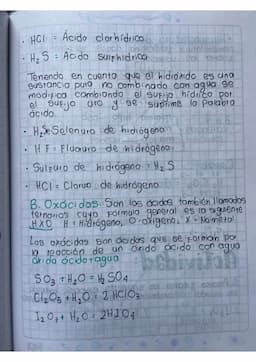 · HCl = Ácido clorhídrico
· H₂S = Ácido sulfhídrico
Teniendo en cuenta que el hidrácido es una
sustancia pura no combinado con agua se
modifica cambiando el sufijo hídrico por
el sufijo uro y se suprime la palabra
ácido.
· H₂Se Selenuro de hidrógeno
· HF = Fluoruro de hidrógeno
· Sulfuro de hidrógeno = H₂S
· HCl = Cloruro de hidrógeno
B. Oxácidos: Son los ácidos también llamados
ternarios cuya formula general es la siguiente
HXO H = Hidrógeno, O = oxígeno, X = No metal.
Los oxácidos son ácidos que se forman por
la reacción de un óxido ácido con agua
óxido ácido + agua
SO₃ + H₂O = H₂SO₄
Cl₂O₅ + H₂O = 2HClO₃
I₂O₇ + H₂O = 2HIO₄